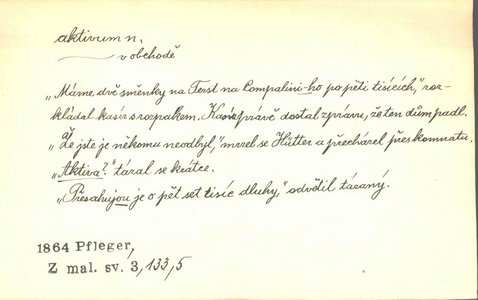 aktivum n.
v obchodě
„Máme dvě směnky na Terst na Compalini-ho po pěti tisících," roz-
kládal kasír s rozpakem. Kasír právě dostal zprávu, že ten dům padl.
„Že jste je někomu neodbyl," mrzel se Hütter a přecházel přes komnatu.
„Aktiva?" tázal se krátce.
„Přesahujou je o pět set tisíc dluhy," odvětil tázaný.
1864 Pfleger,
Z mal. sv. 3,133,5